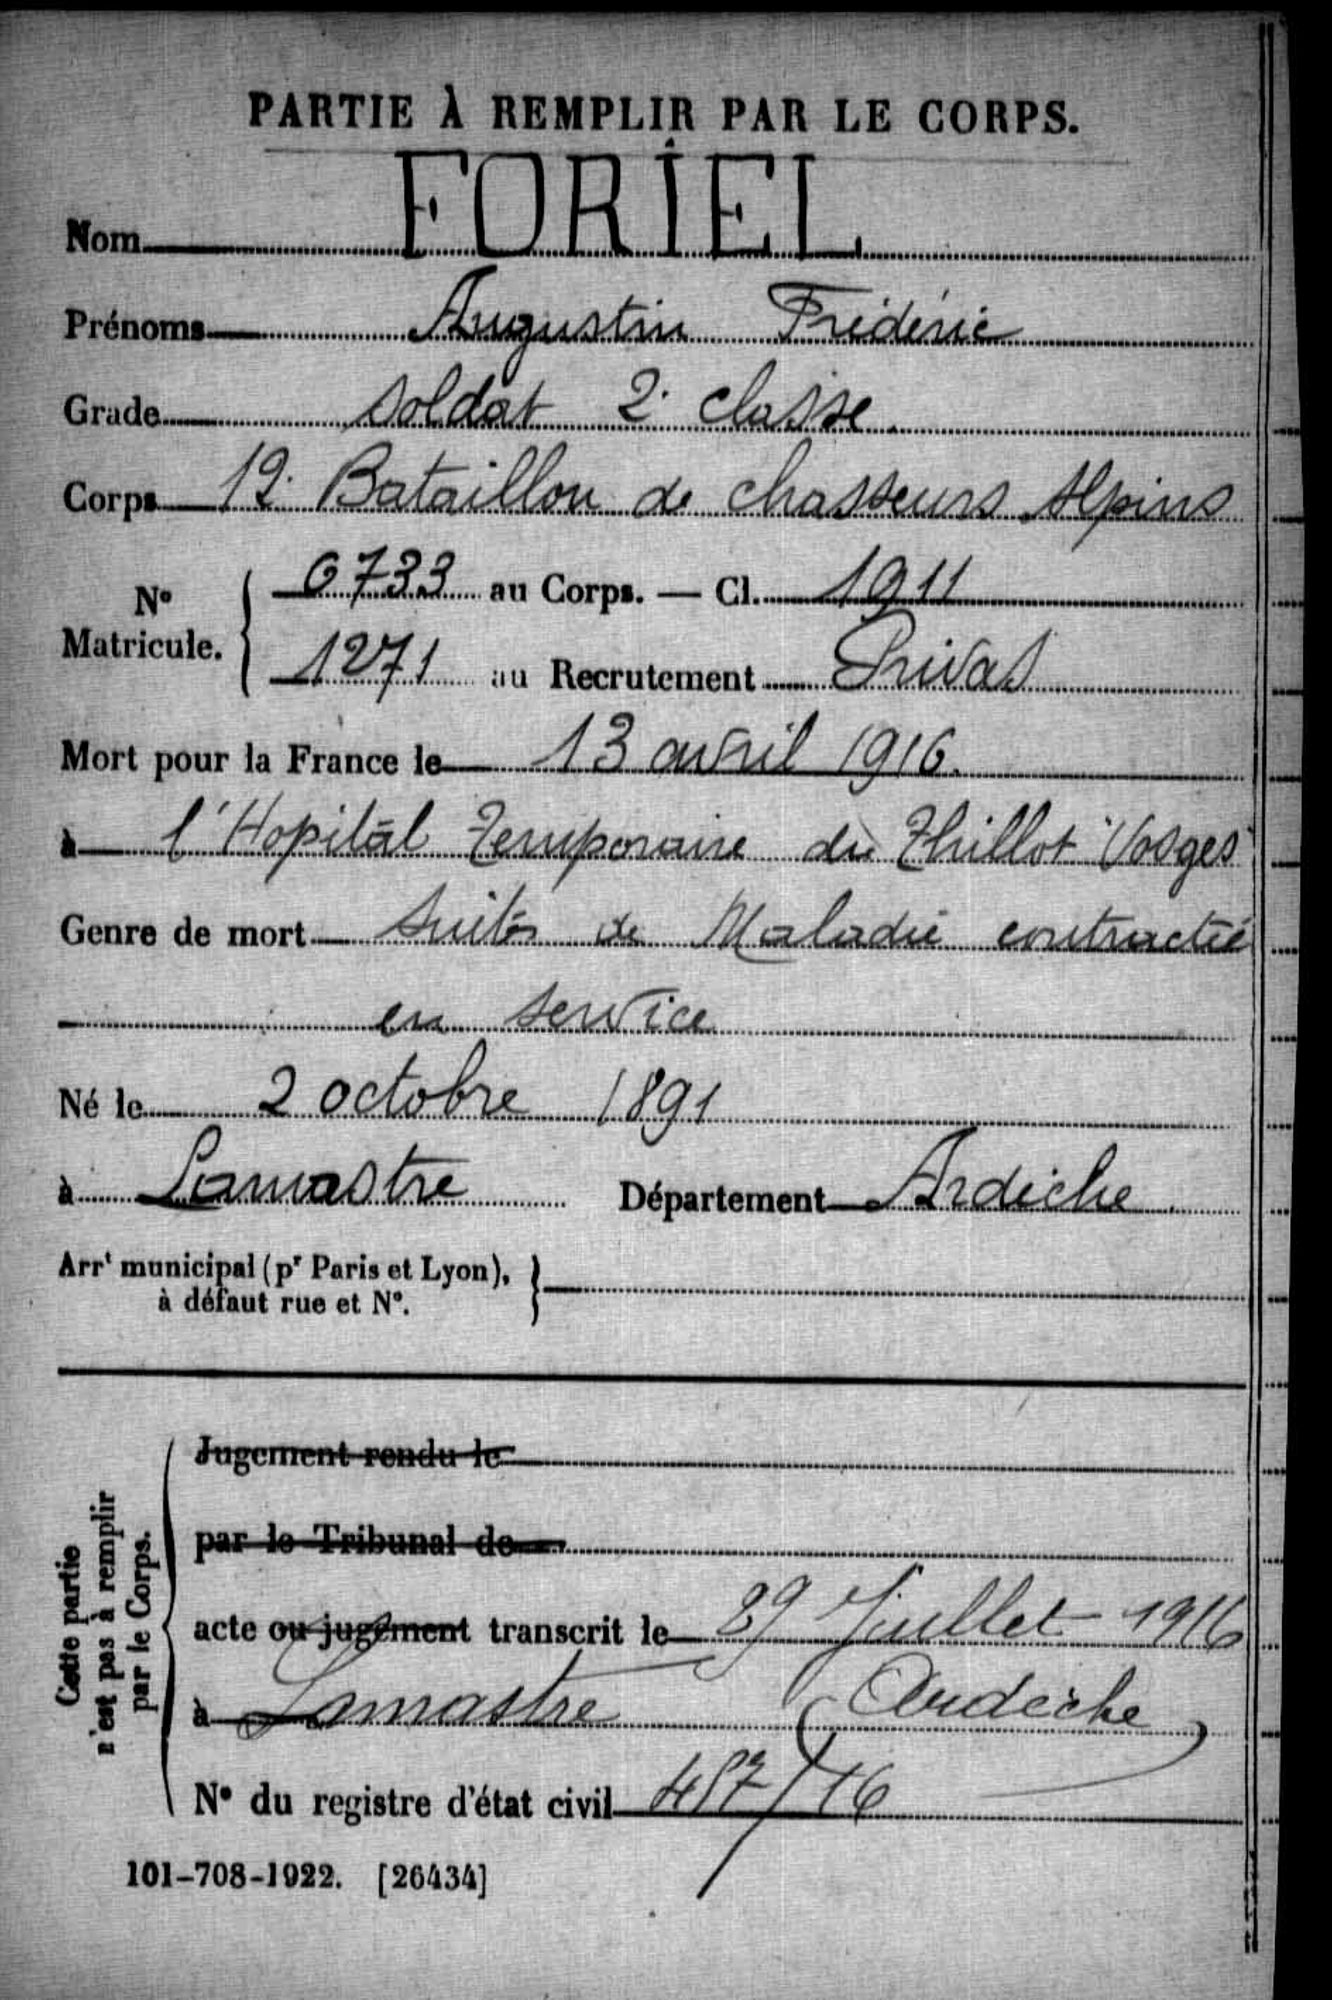 PARTIE À REMPLIR PAR LE CORPS.
Nom FORIEL
Prénoms Augustin Frédéric
Grade soldat 2e classe.
Corps 12e Bataillon de chasseurs Alpins
No Matricule. { 6733 au Corps. — Cl. 1911
1271 au Recrutement Privas
Mort pour la France le 13 avril 1916.
à l'Hopital Temporaire du Thillot "Vosges"
Genre de mort suites de Maladie contractée
en service
Né le 2 octobre 1891
à Lamastre Département Ardèche
Arrt municipal (pr Paris et Lyon), }
à défaut rue et No.
Cette partie
n'est pas à remplir
par le Corps.
Jugement rendu le
par le Tribunal de
acte ou jugement transcrit le 29 Juillet 1916
à Lamastre (Ardèche)
No du registre d'état civil 457/16
101-708-1922. [26434]